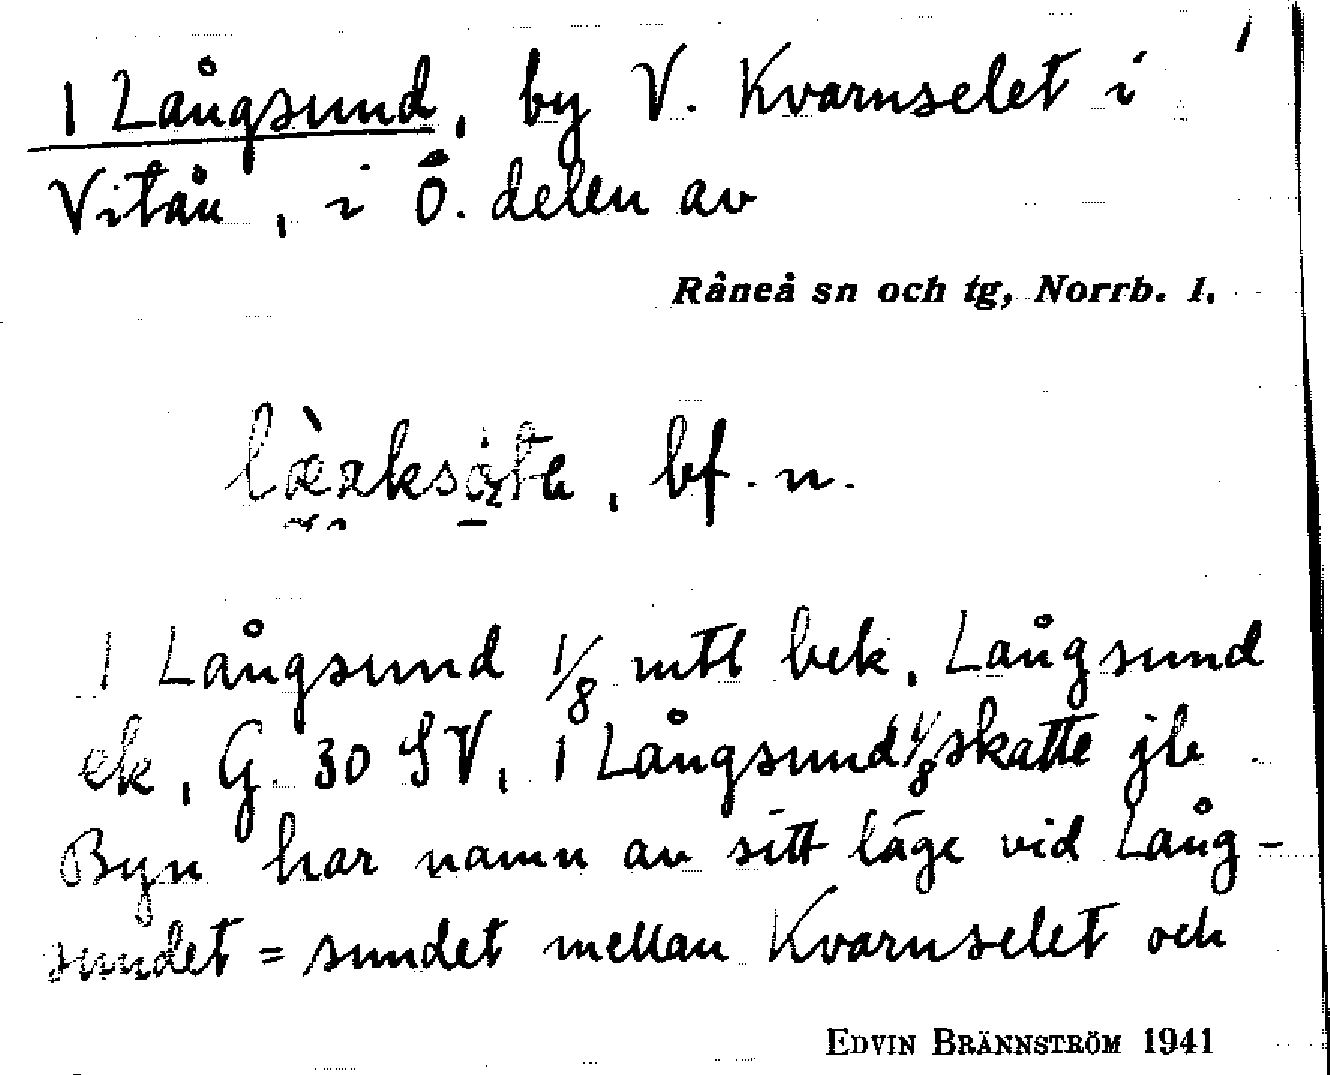 1 Långsund, by V. Kvarnselet i
Vitån, i Ö. delen av
Råneå sn och tg, Norrb. l.
, bf. n.
1 Långsund 1/8 mtl bek, Långsund
ek, G. 30 SV, 1 Långsund 1/8 skatte jb
Byn har namn av sitt läge vid Lång-
sundet = sundet mellan Kvarnselet och
EDVIN BRÄNNSTRÖM 1941